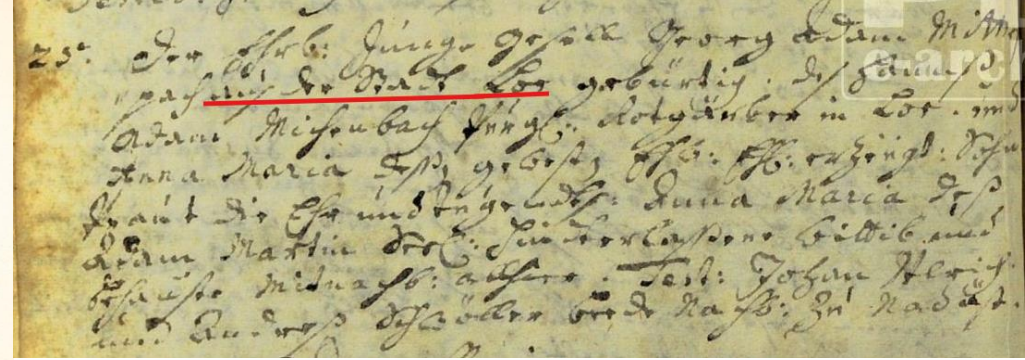 25. Der Ehrb: Junge gesöll Georg Adam Mitten
pach auß der Stadt Loe gebürtig, deß Hannß
Adam Michenbach burgl: Rotgärber in Loe. und
Anna Maria deßen geweste Ehw: Ehl: erzeigt: Sohn
die Ehr und tugendts: Anna Maria deß
Adam Martin Seel: hinterlaßene wittib und
behauste Mitnachb: alhier. Test: Johan Ulrich
und Andreß Schöller beede Nachb: zu